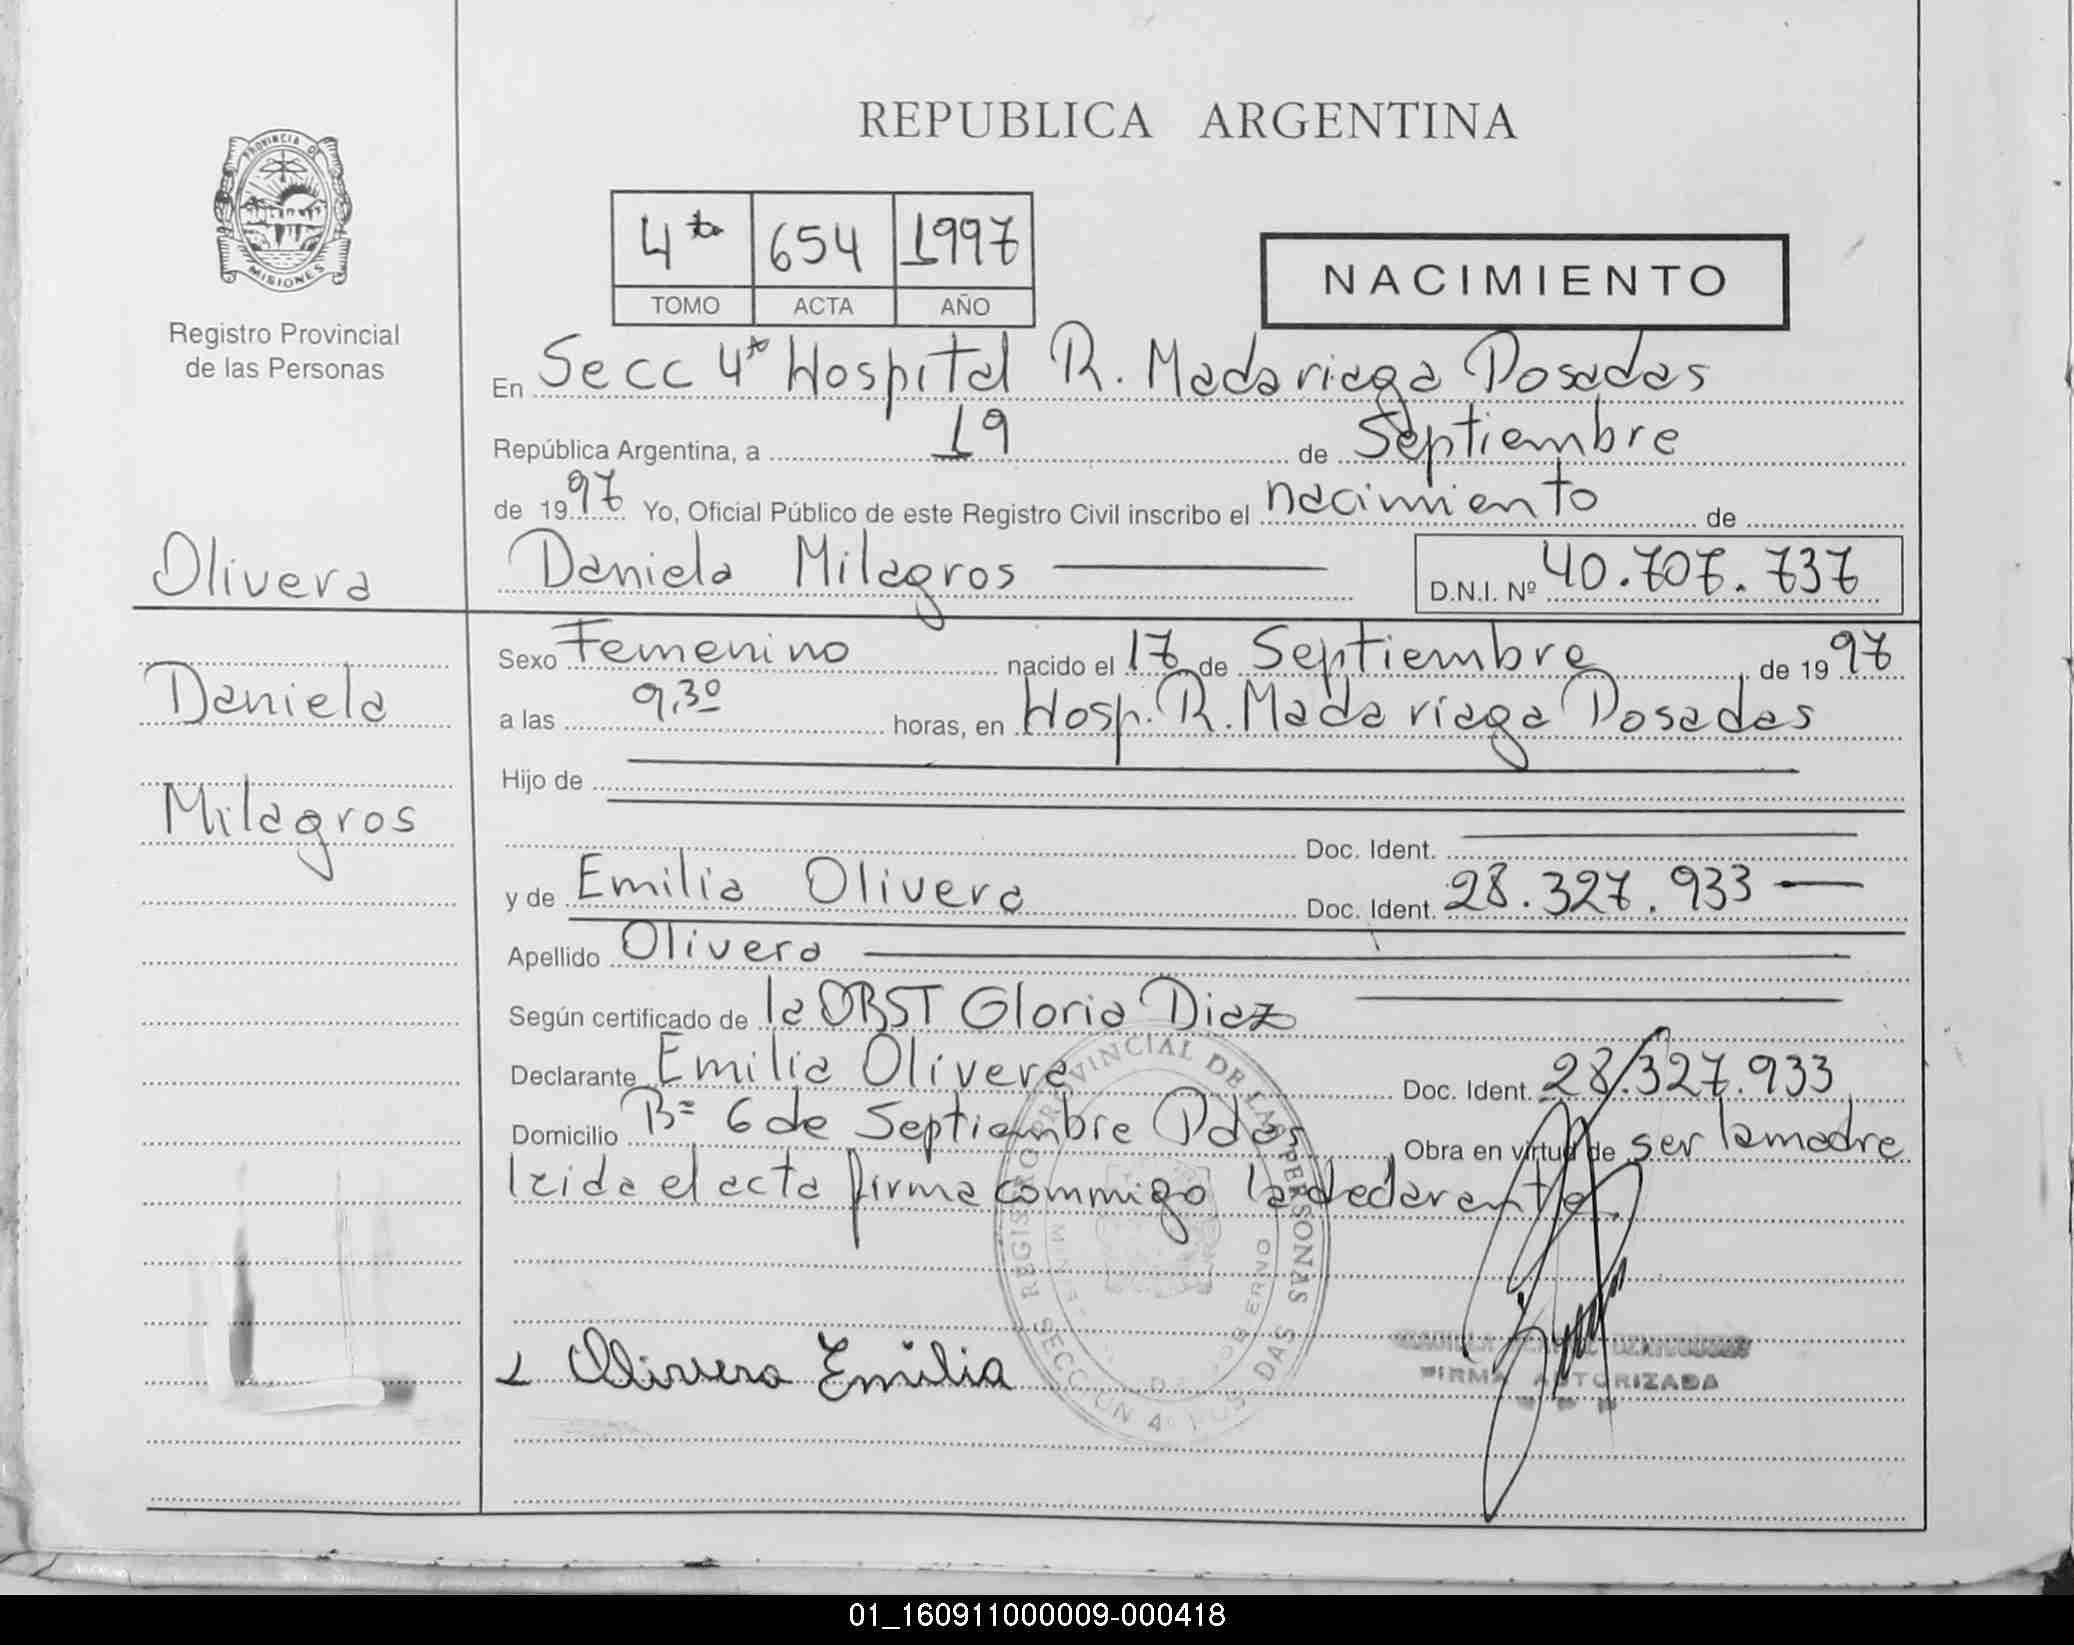 REPUBLICA ARGENTINA
PROVINCIA DE
MISIONES
Registro Provincial
de las Personas
4ta 654 1997
TOMO ACTA AÑO
NACIMIENTO
En Secc 4ta Hospital R. Madariaga Posadas
República Argentina, a 19 de Septiembre
de 1997 Yo, Oficial Público de este Registro Civil inscribo el nacimiento de
Daniela Milagros D.N.I. Nº 40.707.737
Olivera
Daniela
Milagros
Sexo Femenino nacido el 17 de Septiembre de 1997
a las 9,30 horas, en Hosp. R. Madariaga Posadas
Hijo de
Doc. Ident.
y de Emilia Olivera Doc. Ident. 28.327.933
Apellido Olivera
Según certificado de la OBST Gloria Diaz
Declarante Emilia Olivera Doc. Ident. 28.327.933
Domicilio Bº 6 de Septiembre Pdas Obra en virtud de ser la madre
leida el acta firma commigo la declarante
REGISTRO PROVINCIAL DE LAS PERSONAS
SECCION 4ª POSADAS
DE GOBIERNO
Olivera Emilia
FIRMA AUTORIZADA
01_160911000009-000418